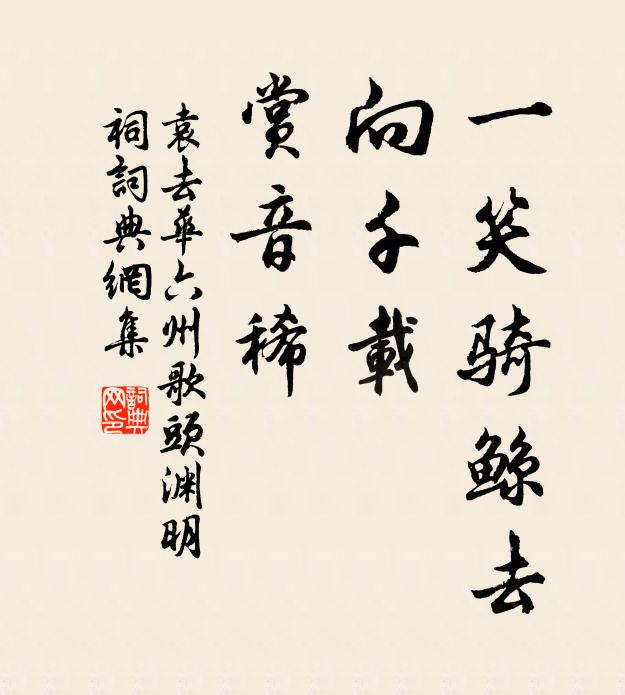 一笑骑鲸去
向千載
賞音稀
袁去華六州歌頭渊明
祠詞典網集
詞典
网印